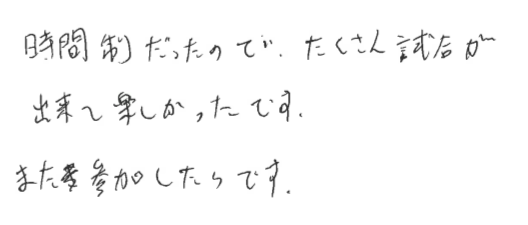 時間制だったので、たくさん試合が
出来て楽しかったです。
また参加したいです。